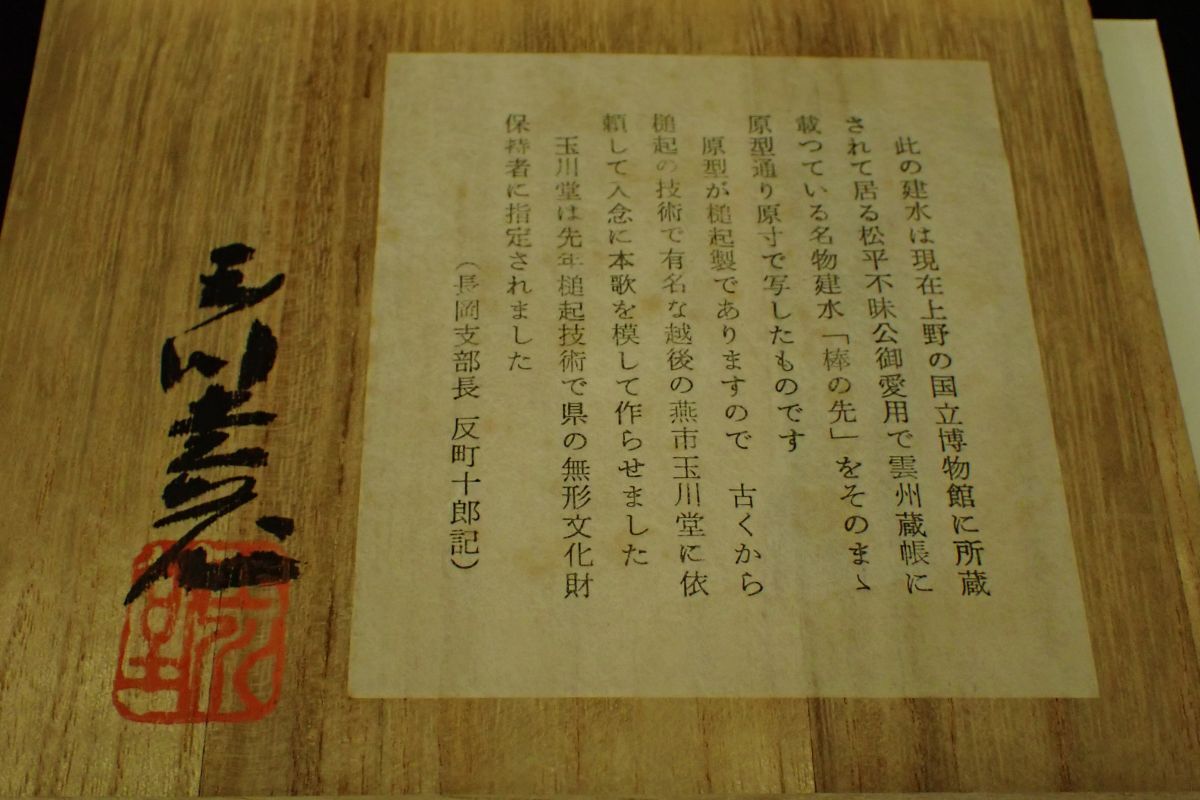 此の建水は現在上野の国立博物館に所蔵
されて居る松平不昧公御愛用で雲州蔵帳に
載つている名物建水「棒の先」をそのまゝ
原型通り原寸で写したものです
原型が槌起製でありますので 古くから
槌起の技術で有名な越後の燕市玉川堂に依
頼して入念に本歌を模して作らせました
玉川堂は先年槌起技術で県の無形文化財
保持者に指定されました
(長岡支部長 反町十郎記)
玉川堂